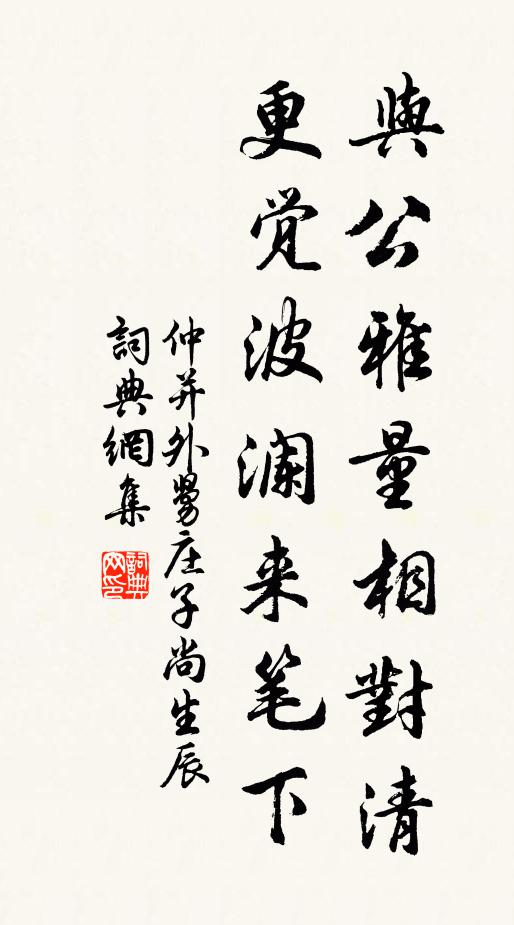 與公雅量相對清
更觉波澜来笔下
仲并外舅庄子尚生辰
詞典網集
詞典网印